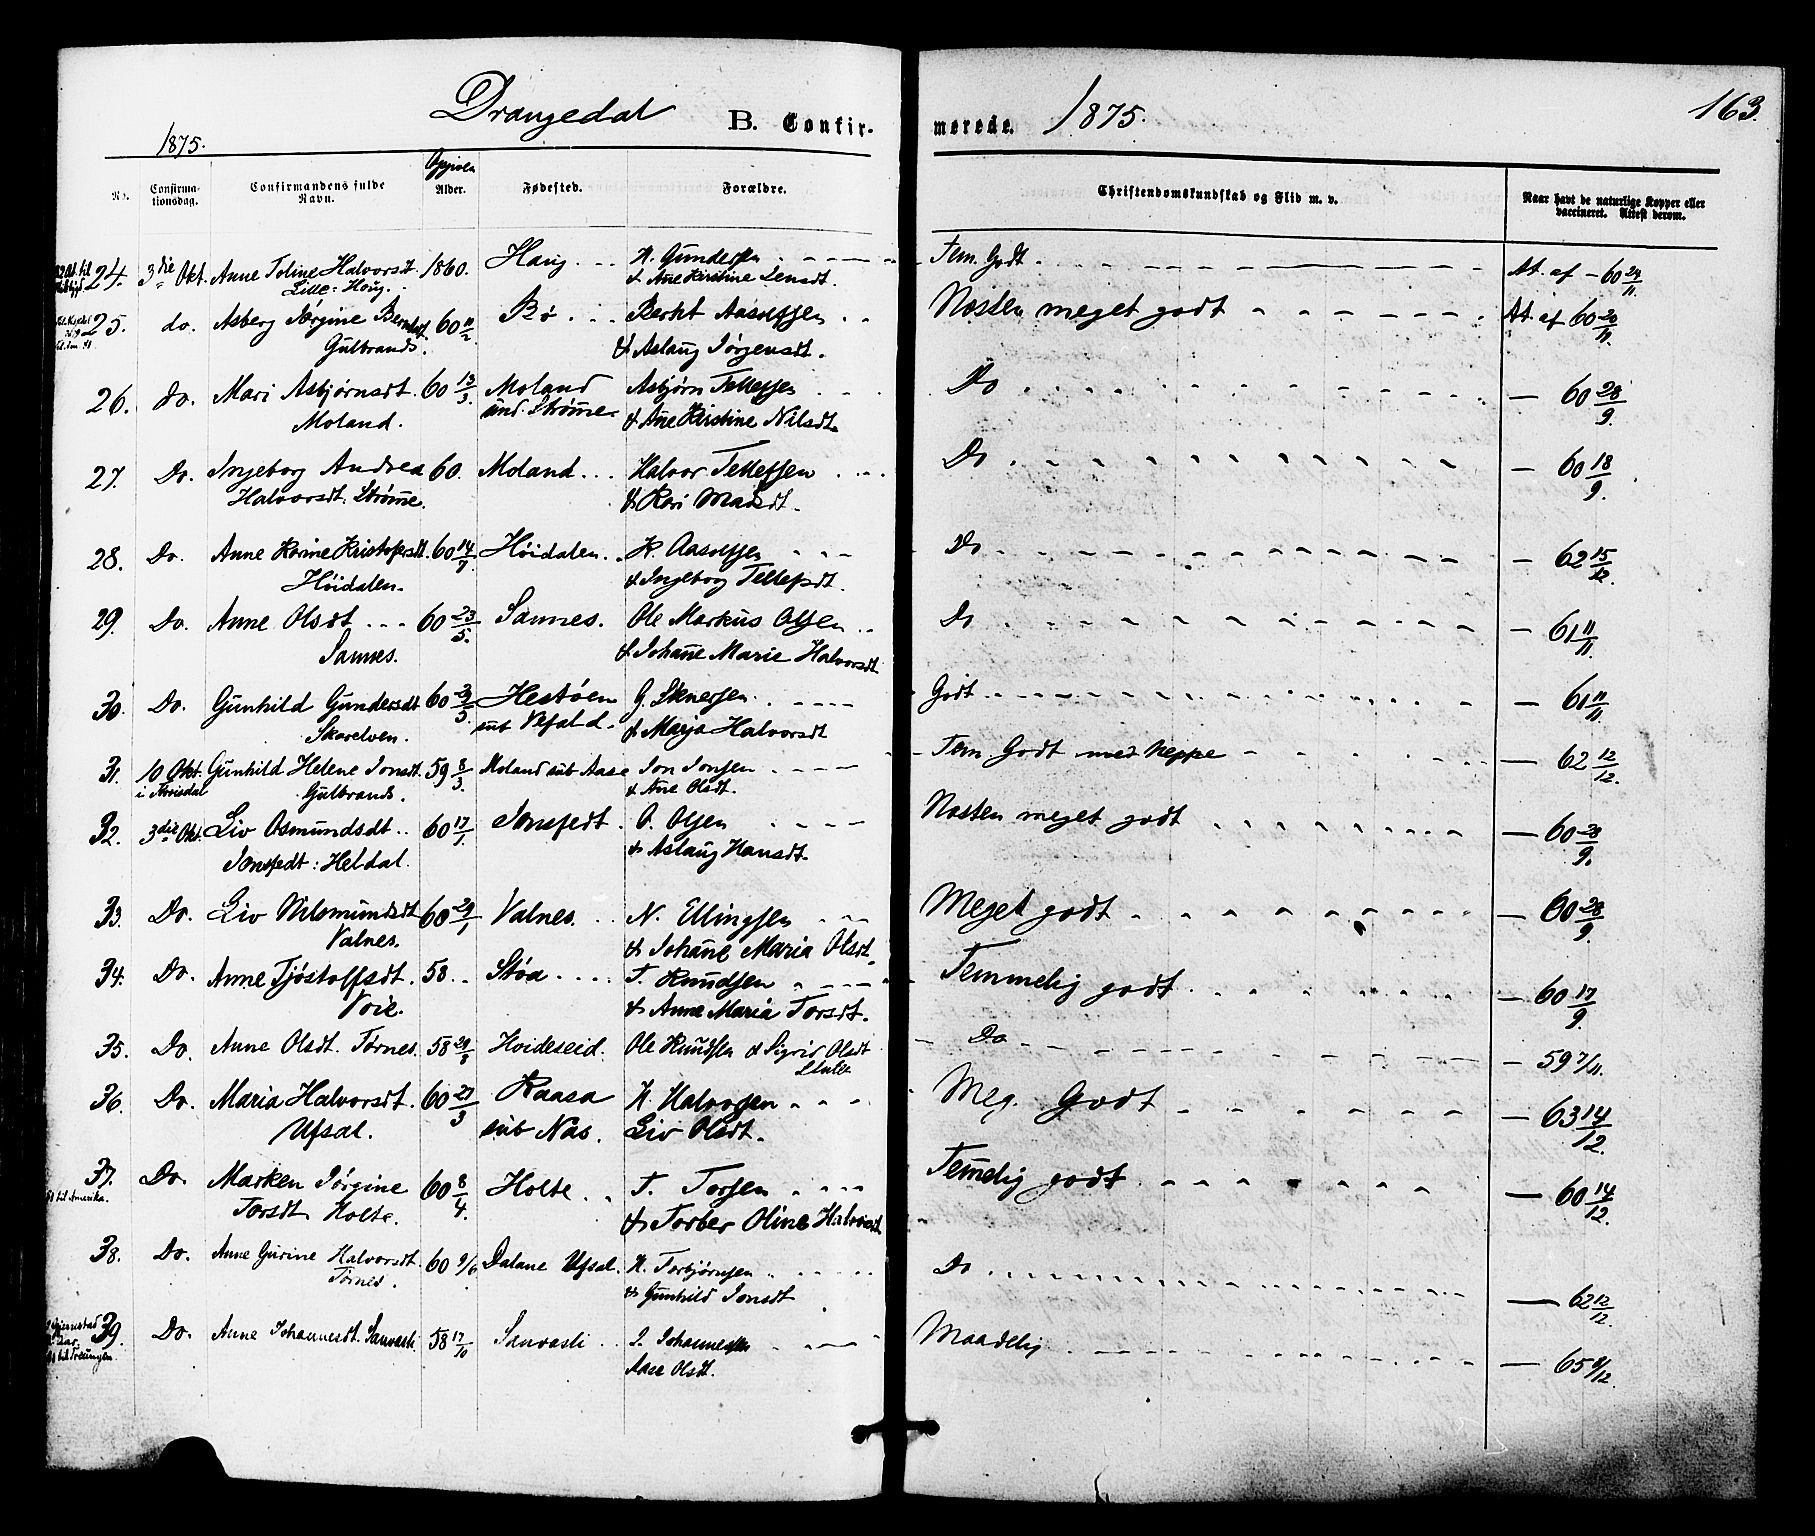 Drangedal B. Confir-
merede. 1875.
163.
1875.
No.
Confirma-
tionsdag.
Confirmandens fulde
Navn.
Opgiven
Alder.
Fødested.
Forældre.
Christendomskundskab og Flid m. v.
Naar havt de naturlige Kopper eller
vaccineret. Attest derom.
24. 3die Okt. Anne Toline Halvorsdt. 1860. Haug H. Gundersen Tem. Godt. At. af - 60 24/11.
Lille-Houg. & Ane Kirstine Jensdt.
25. do. Asberg Jørgine Berntsdt 60 11/2 Bø Berht Aasolfsen Næsten meget godt At. af 60 20/11.
Gulbrands. & Aslaug Jørgensdt.
26. do. Mari Asbjørnsdt. 60 13/3 Moland Asbjørn Tellefsen Do — 60 28/9.
Moland. und. Strømme & Ane Kirstine Nilsdt.
27. Do. Ingeborg Andrea 60. Moland Halvor Tellefsen Do — 60 18/9.
Halvorsdt. Strømme. & Kari Madsdt.
28. Do. Anne Karine Kristofersdt. 60 14/7 Høidalen. K. Aasolfsen Do — 62 15/12.
Høidalen. & Ingeborg Tellefsdt.
29. Do. Anne Olsdt 60 23/5. Sannes. Ole Markus Olsen Do — 61 11/11.
Sannes. & Johanne Marie Halvorsdt
30. Do. Gunhild Gundersdt 60 Hestøen G. Stenersen. Godt — 61 11/11.
Skarelven. sub Vefald. & Marja Halvorsdt
31. 10 Okt. Gunhild Helene Jonsdt. 59 8/3. Moland sub Aase Jon Jonsen Tem Godt med Neppe — 62 12/12.
i Tørrisdal Gulbrands. & Ane Olsdt.
32. 3die Okt. Liv Osmundsdt 60 17/1 Jonsfedt. O. Olsen Næsten meget godt — 60 28/9.
Jonsfedt: Heldal. & Aslaug Hansdt.
33. Do. Liv Nilsmundsdt 60 29/1 Valnes. N. Ellingsen Meget godt — 60 28/9.
Valnes. & Johanne Maria Olsdt.
34. Do. Anne Tjøstolfsdt. 58 Støa T. Knudsen Temmelig godt — 60 17/9.
Voie. & Anne Maria Torsdt.
35. Do. Anne Olsdt. Tørnes. 58 29/8 Hvideseid. Ole Knudsen & Sigrid Olsdt Do — 59 7/11.
36. Do. Maria Halvorsdt. 60 27/3 Kaasa H. Halvorsen Meg. Godt — 63 14/12.
Ufsal. sub Næs. Liv Olsdt.
37. Do. Marken Jørgine 60 8/4. Holte T. Torsen Temmelig godt — 60 14/12.
til Amerika. Torsdt. Holte. & Torber Oline Halvorsdt
38. Do. Anne Gurine Halvorsdt. 60 9/6 Dalane Ufsal. H. Torbjørnsen Do — 62 12/12.
Tørnes. & Gunhild Jonsdt
39. Do. Anne Johannesdt. Sanvasli. 58 17/10 Sanvasli J. Johannessen Maadelig — 65 8/12.
til Treungen. Aase Olsdt.